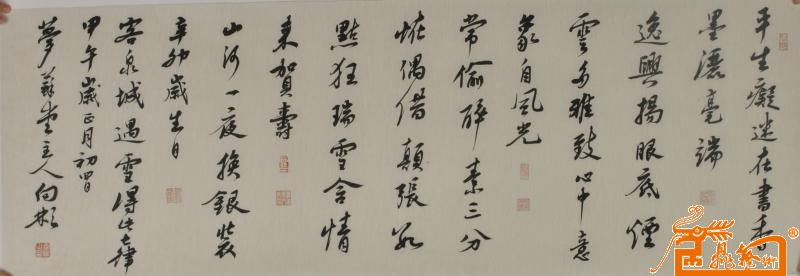 平生癡迷在書香
墨灑毫端
逸興揚眼底煙
雲多雅致心中意
象自風光
常偷醉素三分
恠偶借顛張幾
點狂瑞雪含情
來賀壽
山河一夜換銀裝
辛卯歲生日
客泉城遇雪得此七律
甲午歲正月初
夢蘇堂主人向彬